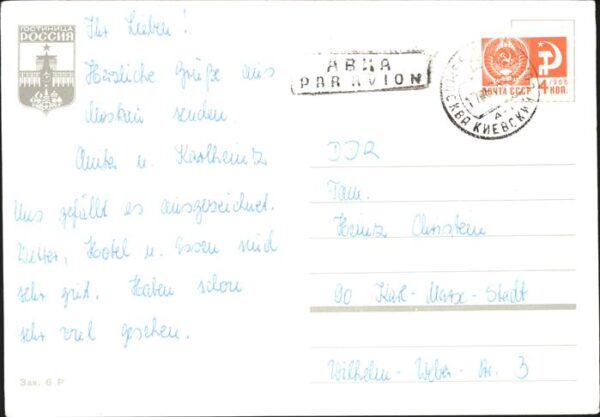 ГОСТИНИЦА
РОССИЯ
Ihr Lieben!
Herzliche Grüße aus
Moskau senden
Anita u. Karlheinz
Uns gefällt es ausgezeichnet.
Wetter, Hotel u. Essen sind
sehr gut. Haben schon
sehr viel gesehen.
Зак. 6 Р
АВИА
PAR AVION
1966
ПОЧТА СССР 4 КОП.
МОСКВА КИЕВСКИЙ
DDR
Fam.
Heinz
90 Karl-Marx-Stadt
Wilhelm-Weber-Str. 3